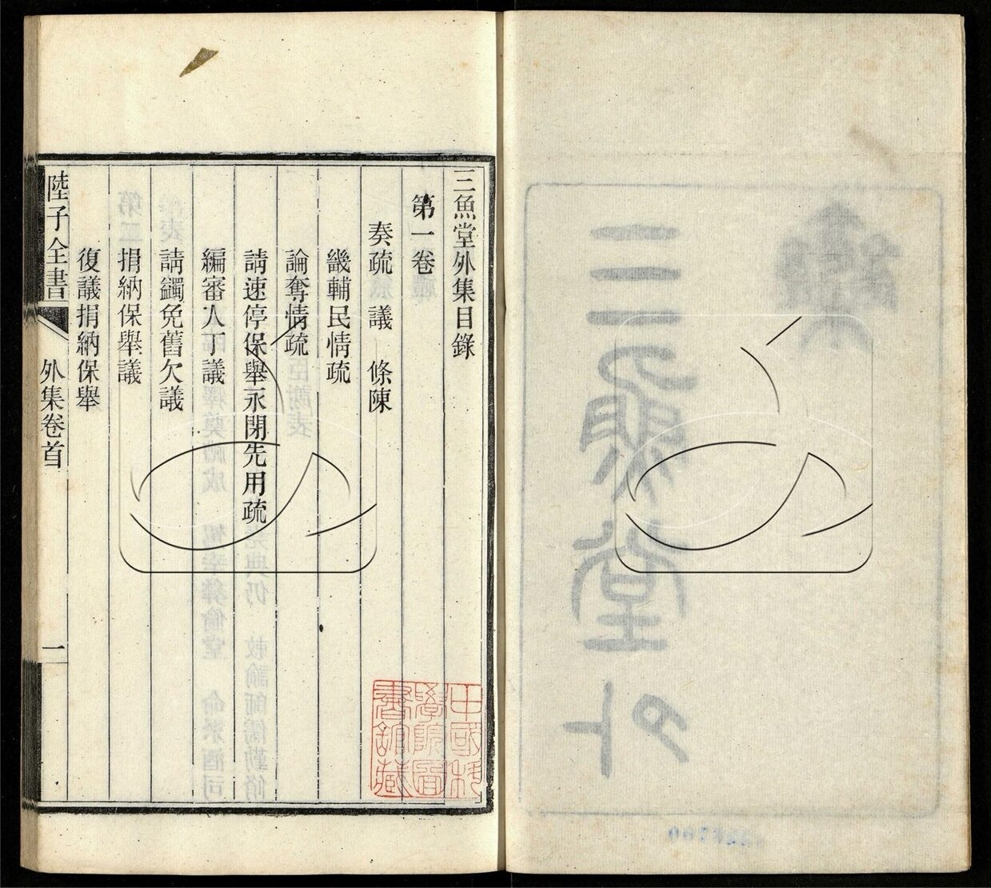 三魚堂外集目錄
第一卷
奏疏 議 條陳
畿輔民情疏
論奪情疏
請速停保舉永閉先用疏
編審人丁議
請蠲免舊欠議
捐納保舉議
復議捐納保舉
陸子全書 外集卷首 一
中國科學院圖書館藏